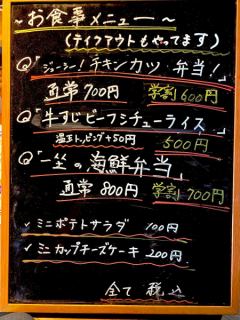 ～お食事メニュー～
(テイクアウトもやってます)
ジューシー!チキンカツ弁当!
通常700円 学割600円
牛すじビーフシチューライス
温玉トッピング+50円 500円
の海鮮弁当
通常800円 学割700円
✓ミニポテトサラダ 100円
✓ミニカップチーズケーキ 200円
全て税込